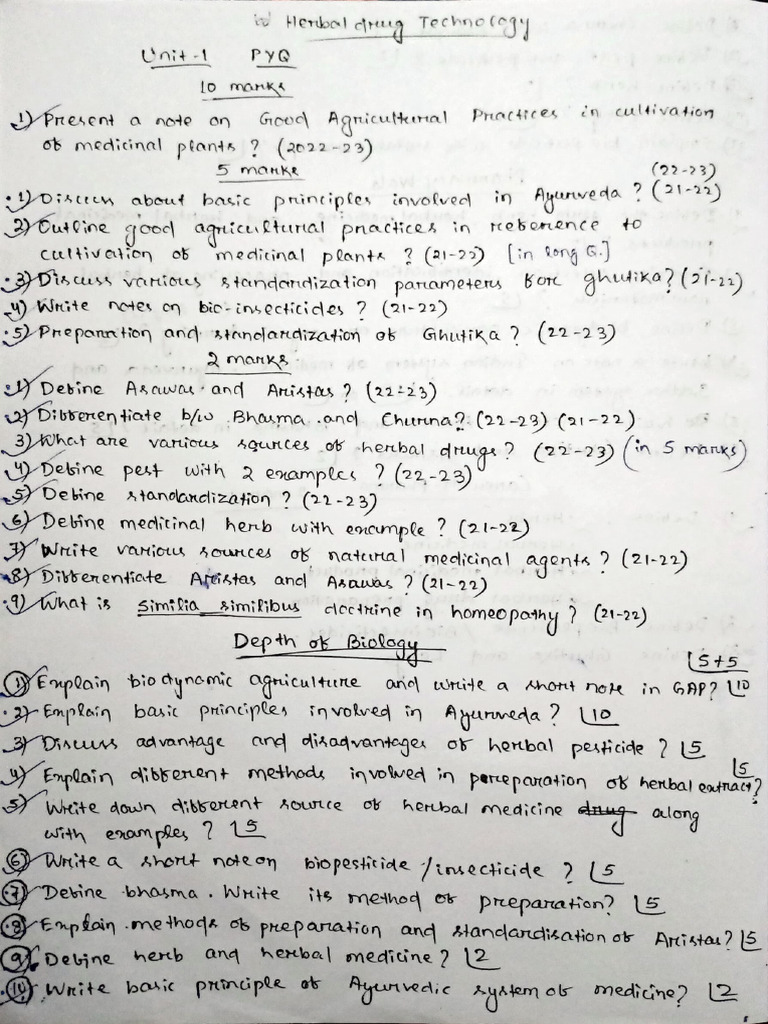 Herbal drug Technology
Unit-1 PYQ
10 marks
1) Present a note on Good Agricultural Practices in cultivation
of medicinal plants? (2022-23)
5 marks
(22-23)
1) Discuss about basic principles involved in Ayurveda? (21-22)
2) Outline good agricultural practices in reference to
cultivation of medicinal plants? (21-22) [in long Q.]
3) Discuss various standardization parameters for ghutika? (21-22)
4) Write notes on bio-insecticides? (21-22)
5) Preparation and standardization of Ghutika? (22-23)
2 marks
1) Define Asawas and Aristas? (22-23)
2) Differentiate b/w Bhasma and Churna? (22-23) (21-22)
3) What are various sources of herbal drugs? (22-23) (in 5 marks)
4) Define pest with 2 examples? (22-23)
5) Define standardization? (22-23)
6) Define medicinal herb with example? (21-22)
7) Write various sources of natural medicinal agents? (21-22)
8) Differentiate Aristas and Asawas? (21-22)
9) What is similia similibus doctrine in homeopathy? (21-22)
Depth of Biology
5+5
1) Explain biodynamic agriculture and write a short note in GAP? 10
2) Explain basic principles involved in Ayurveda? 10
3) Discuss advantage and disadvantages of herbal pesticide? 5
5
4) Explain different methods involved in preparation of herbal extract?
5) Write down different source of herbal medicine drug along
with examples? 5
6) Write a short note on biopesticide/insecticide? 5
7) Define bhasma. Write its method of preparation? 5
8) Explain methods of preparation and standardisation of Aristas? 5
9) Define herb and herbal medicine? 2
10) Write basic principle of Ayurvedic system of medicine? 2